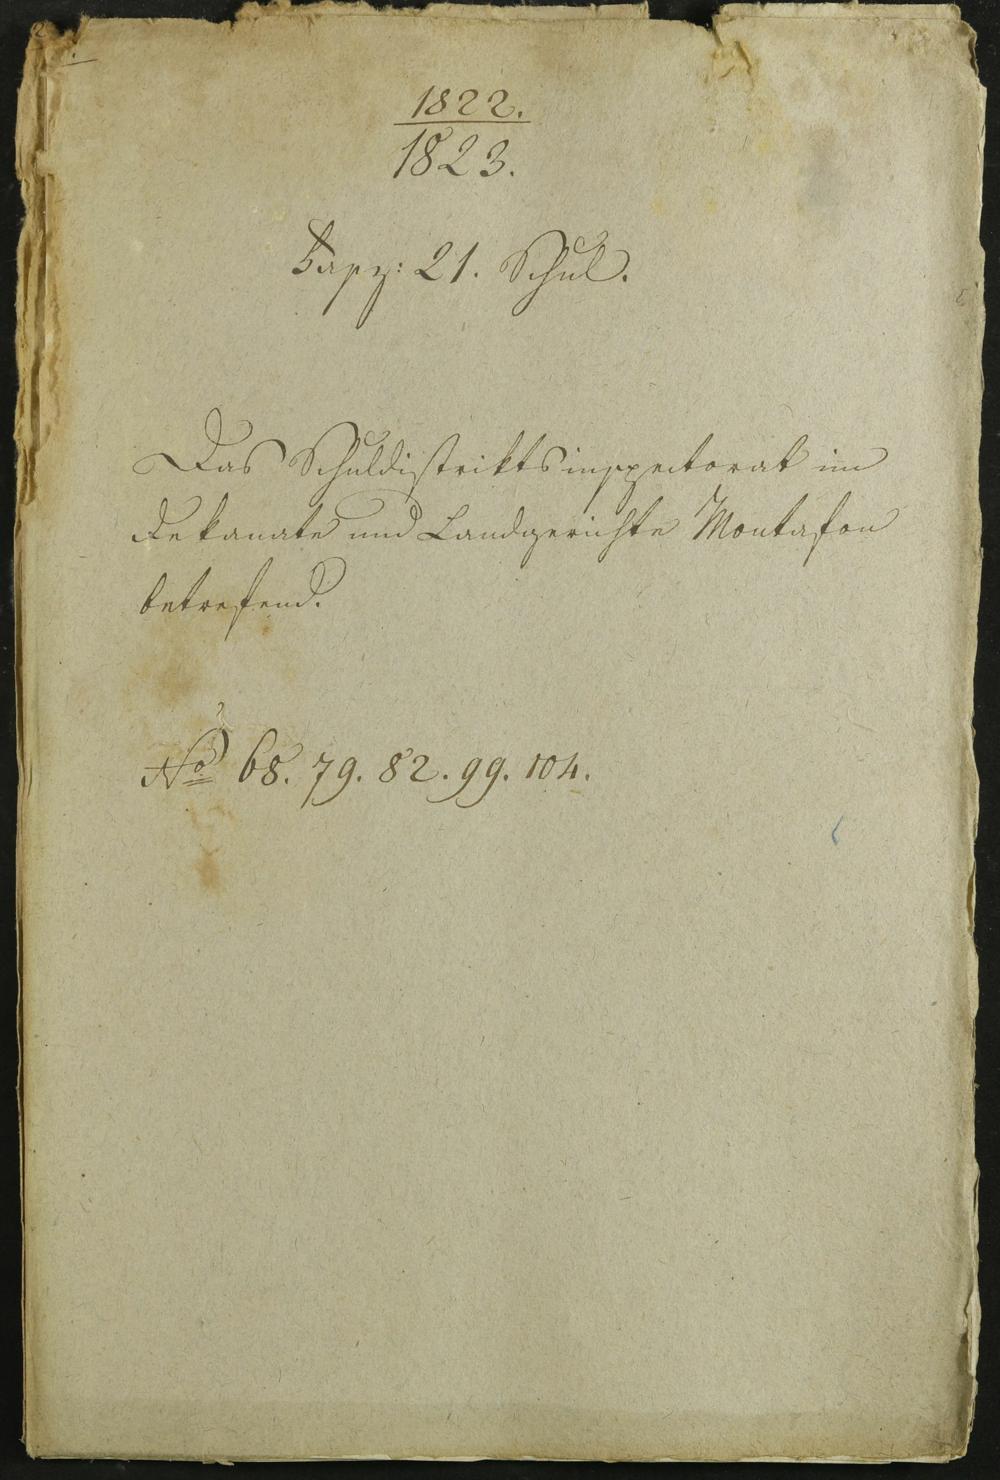 1822.
1823.
Fasz: 21. Schul.
Das Schuldistriktsinspectorat im
Dekanate und Landgerichte Montafon
betrefend.
No 68. 79. 82. 99. 104.